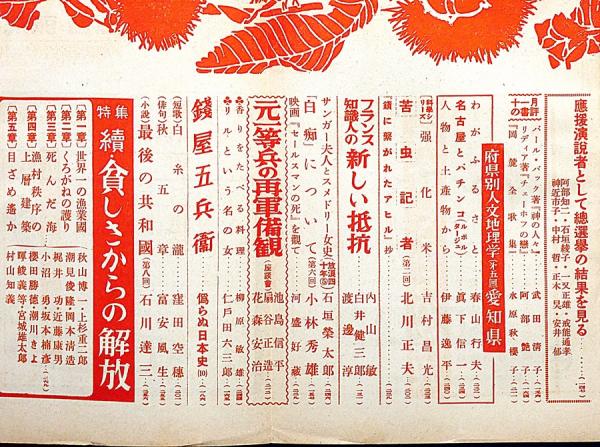 應援演説者として總選擧の結果を見る
阿部知二・石垣綾子・一又正雄・戒能通孝
神近市子・中村哲・正木昊・安井郁
十一月の書評
パール・バック著『神の人々』 武田清子
リディア著『チェーホフの戀』 阿部艶子
『岡麓全歌集』 水原秋櫻子
府県別人文地理学(第五回)愛知県
わがふるさと 春山行夫
名古屋とパチンコ(ルポルタージュ) 眞下信一
人物と土産物から 伊藤逸平
科学シリーズ 强化米 吉村昌光
苦虫記者(第二回) 北川正夫
鎖に繋がれたアヒル抄
フランス知識人の 新しい抵抗
内山敏
白井健三郎
渡邊淳
サンガー夫人とスメドリー女史 石垣榮太郎
「白痴」について(第六回) 小林秀雄
映画『セールスマンの死』を觀て 河盛好蔵
元一等兵の再軍備観(座談會)
池島信平
扇谷正造
花森安治
香りをたべる料理 柳原敏雄
リルという名の女 仁戸田六三郎
錢屋五兵衞 僞らぬ日本史(10)
(短歌)白糸の瀧 窪田空穂
(俳句)秋草會 富安風生
(小説)最後の共和國(第八回) 石川達三
特集 續・貧しさからの解放
[第一章]世界一の漁業國 秋山博一・上杉重二郎
[第二章]くろがねの護り 潮見俊隆・岡本清造
[第三章]死んだ海 梶井功・近藤康男
[第四章]漁村秩序の上層建築 小沼勇・坂本楠彦
櫻田勝徳・潮見きよ
暉峻義等・宮城雄太郎
[第五章]目ざめ遙か 村山知義